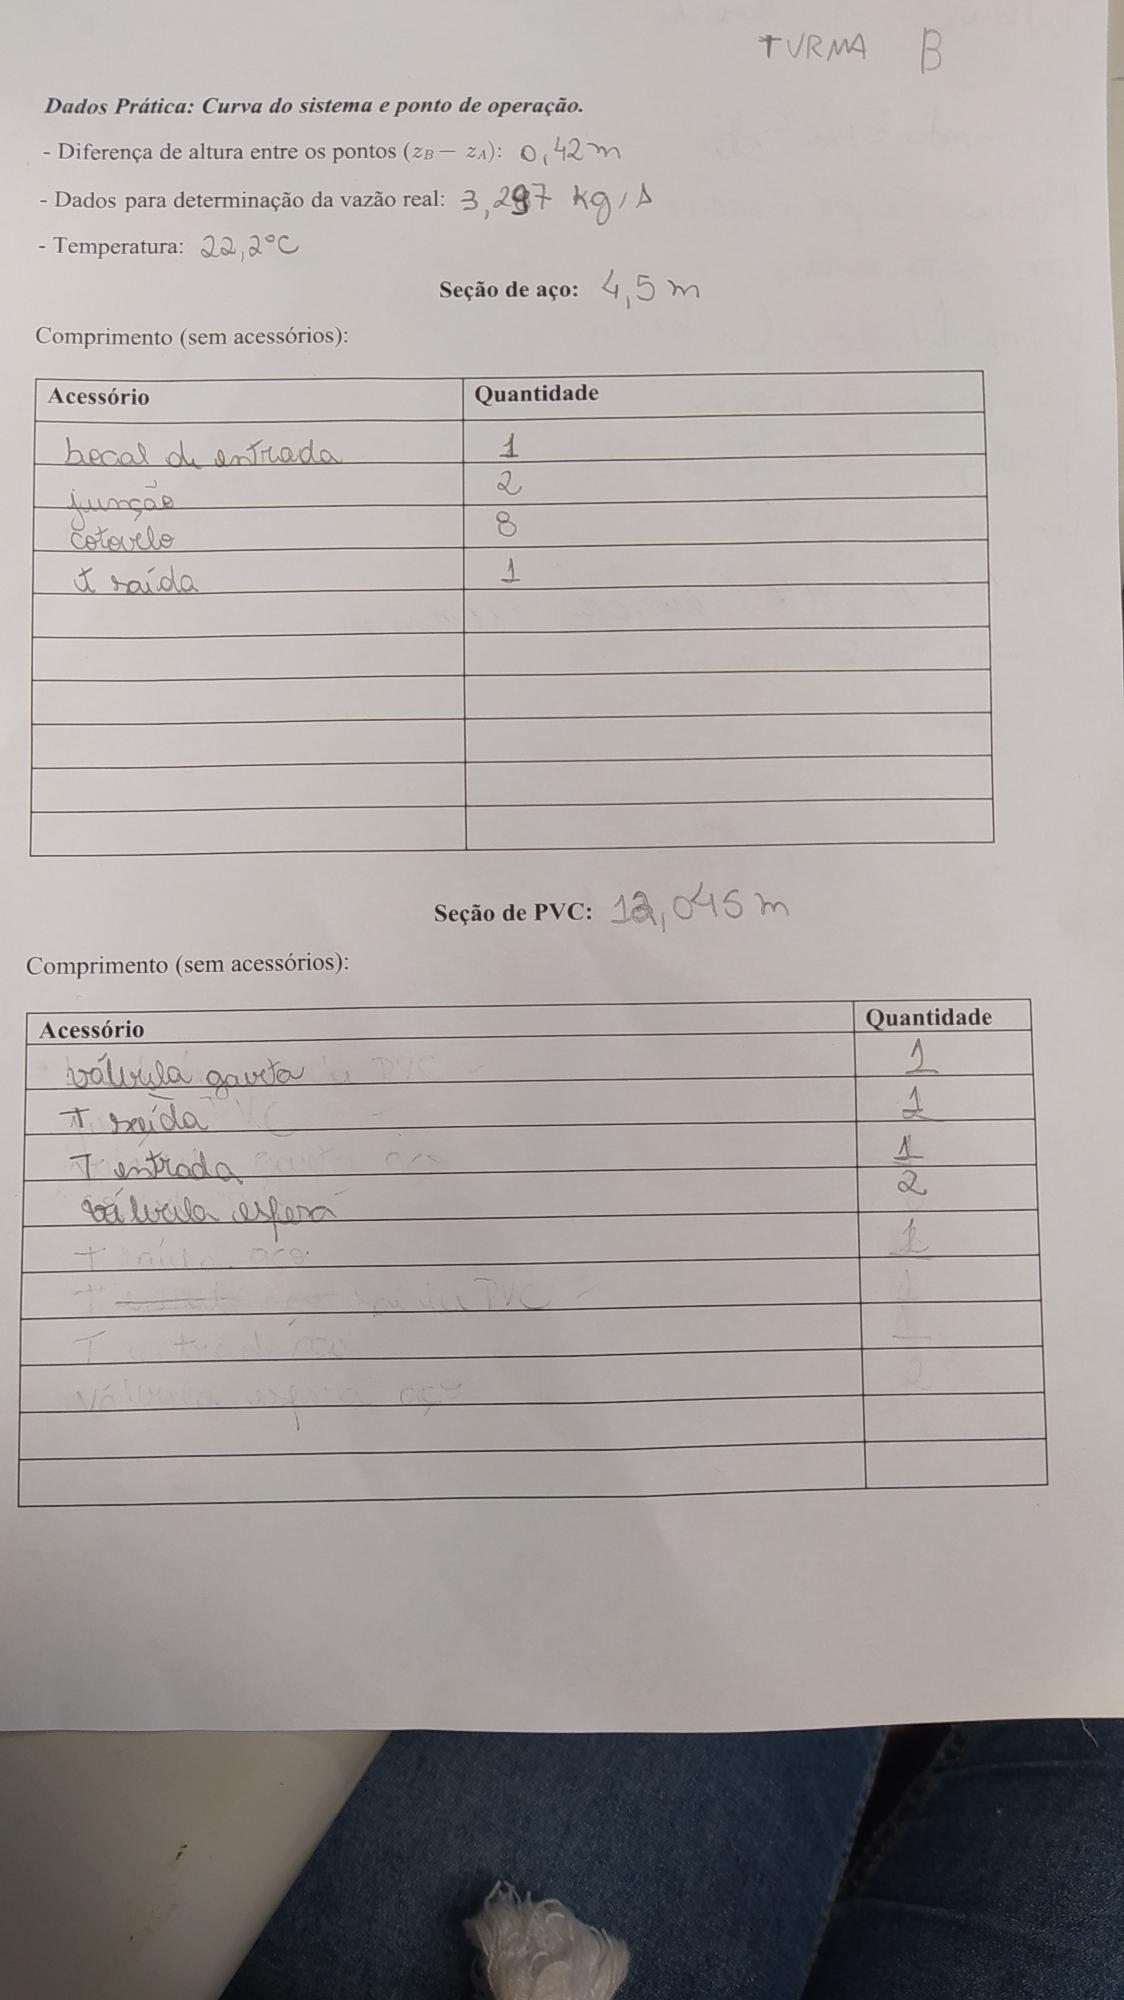 TURMA B
Dados Prática: Curva do sistema e ponto de operação.
- Diferença de altura entre os pontos (zB — zA): 0,42 m
- Dados para determinação da vazão real: 3,297 kg/s
- Temperatura: 22,2°C
Seção de aço: 4,5 m
Comprimento (sem acessórios):
Acessório Quantidade
bocal de entrada 1
junção 2
cotovelo 8
t saída 1
Seção de PVC: 12,045 m
Comprimento (sem acessórios):
Acessório Quantidade
válvula gaveta PVC 1
T saída 1
T entrada aço 1
válvula esfera 2
T saída aço 1
T saída PVC 1
T entrada aço 1
Válvula esfera aço 2